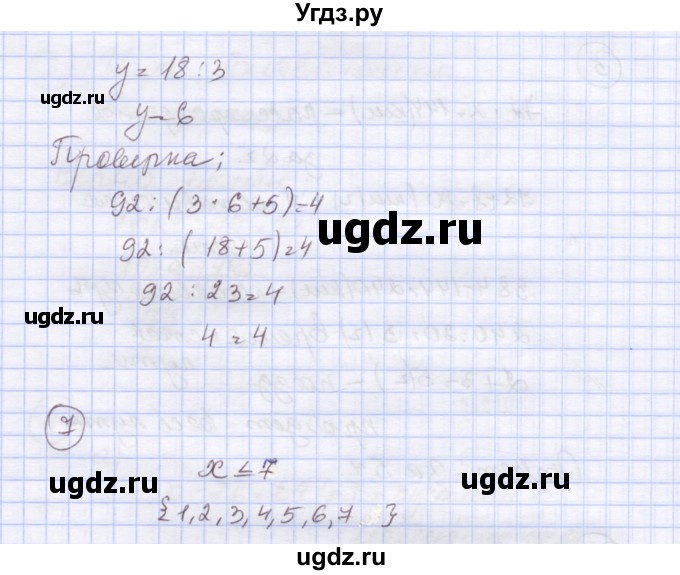 Угдз.ру
y = 18 : 3
y = 6
Проверка;
92 : ( 3 · 6 + 5 ) = 4
92 : ( 18 + 5 ) = 4
92 : 23 = 4
4 = 4
7
x ≤ 7
{ 1, 2, 3, 4, 5, 6, 7 }
uдgz.ru
uдgz.ru
uдgz.ru
uдgz.ru
uдgz.ru
uдgz.ru
uдgz.ru